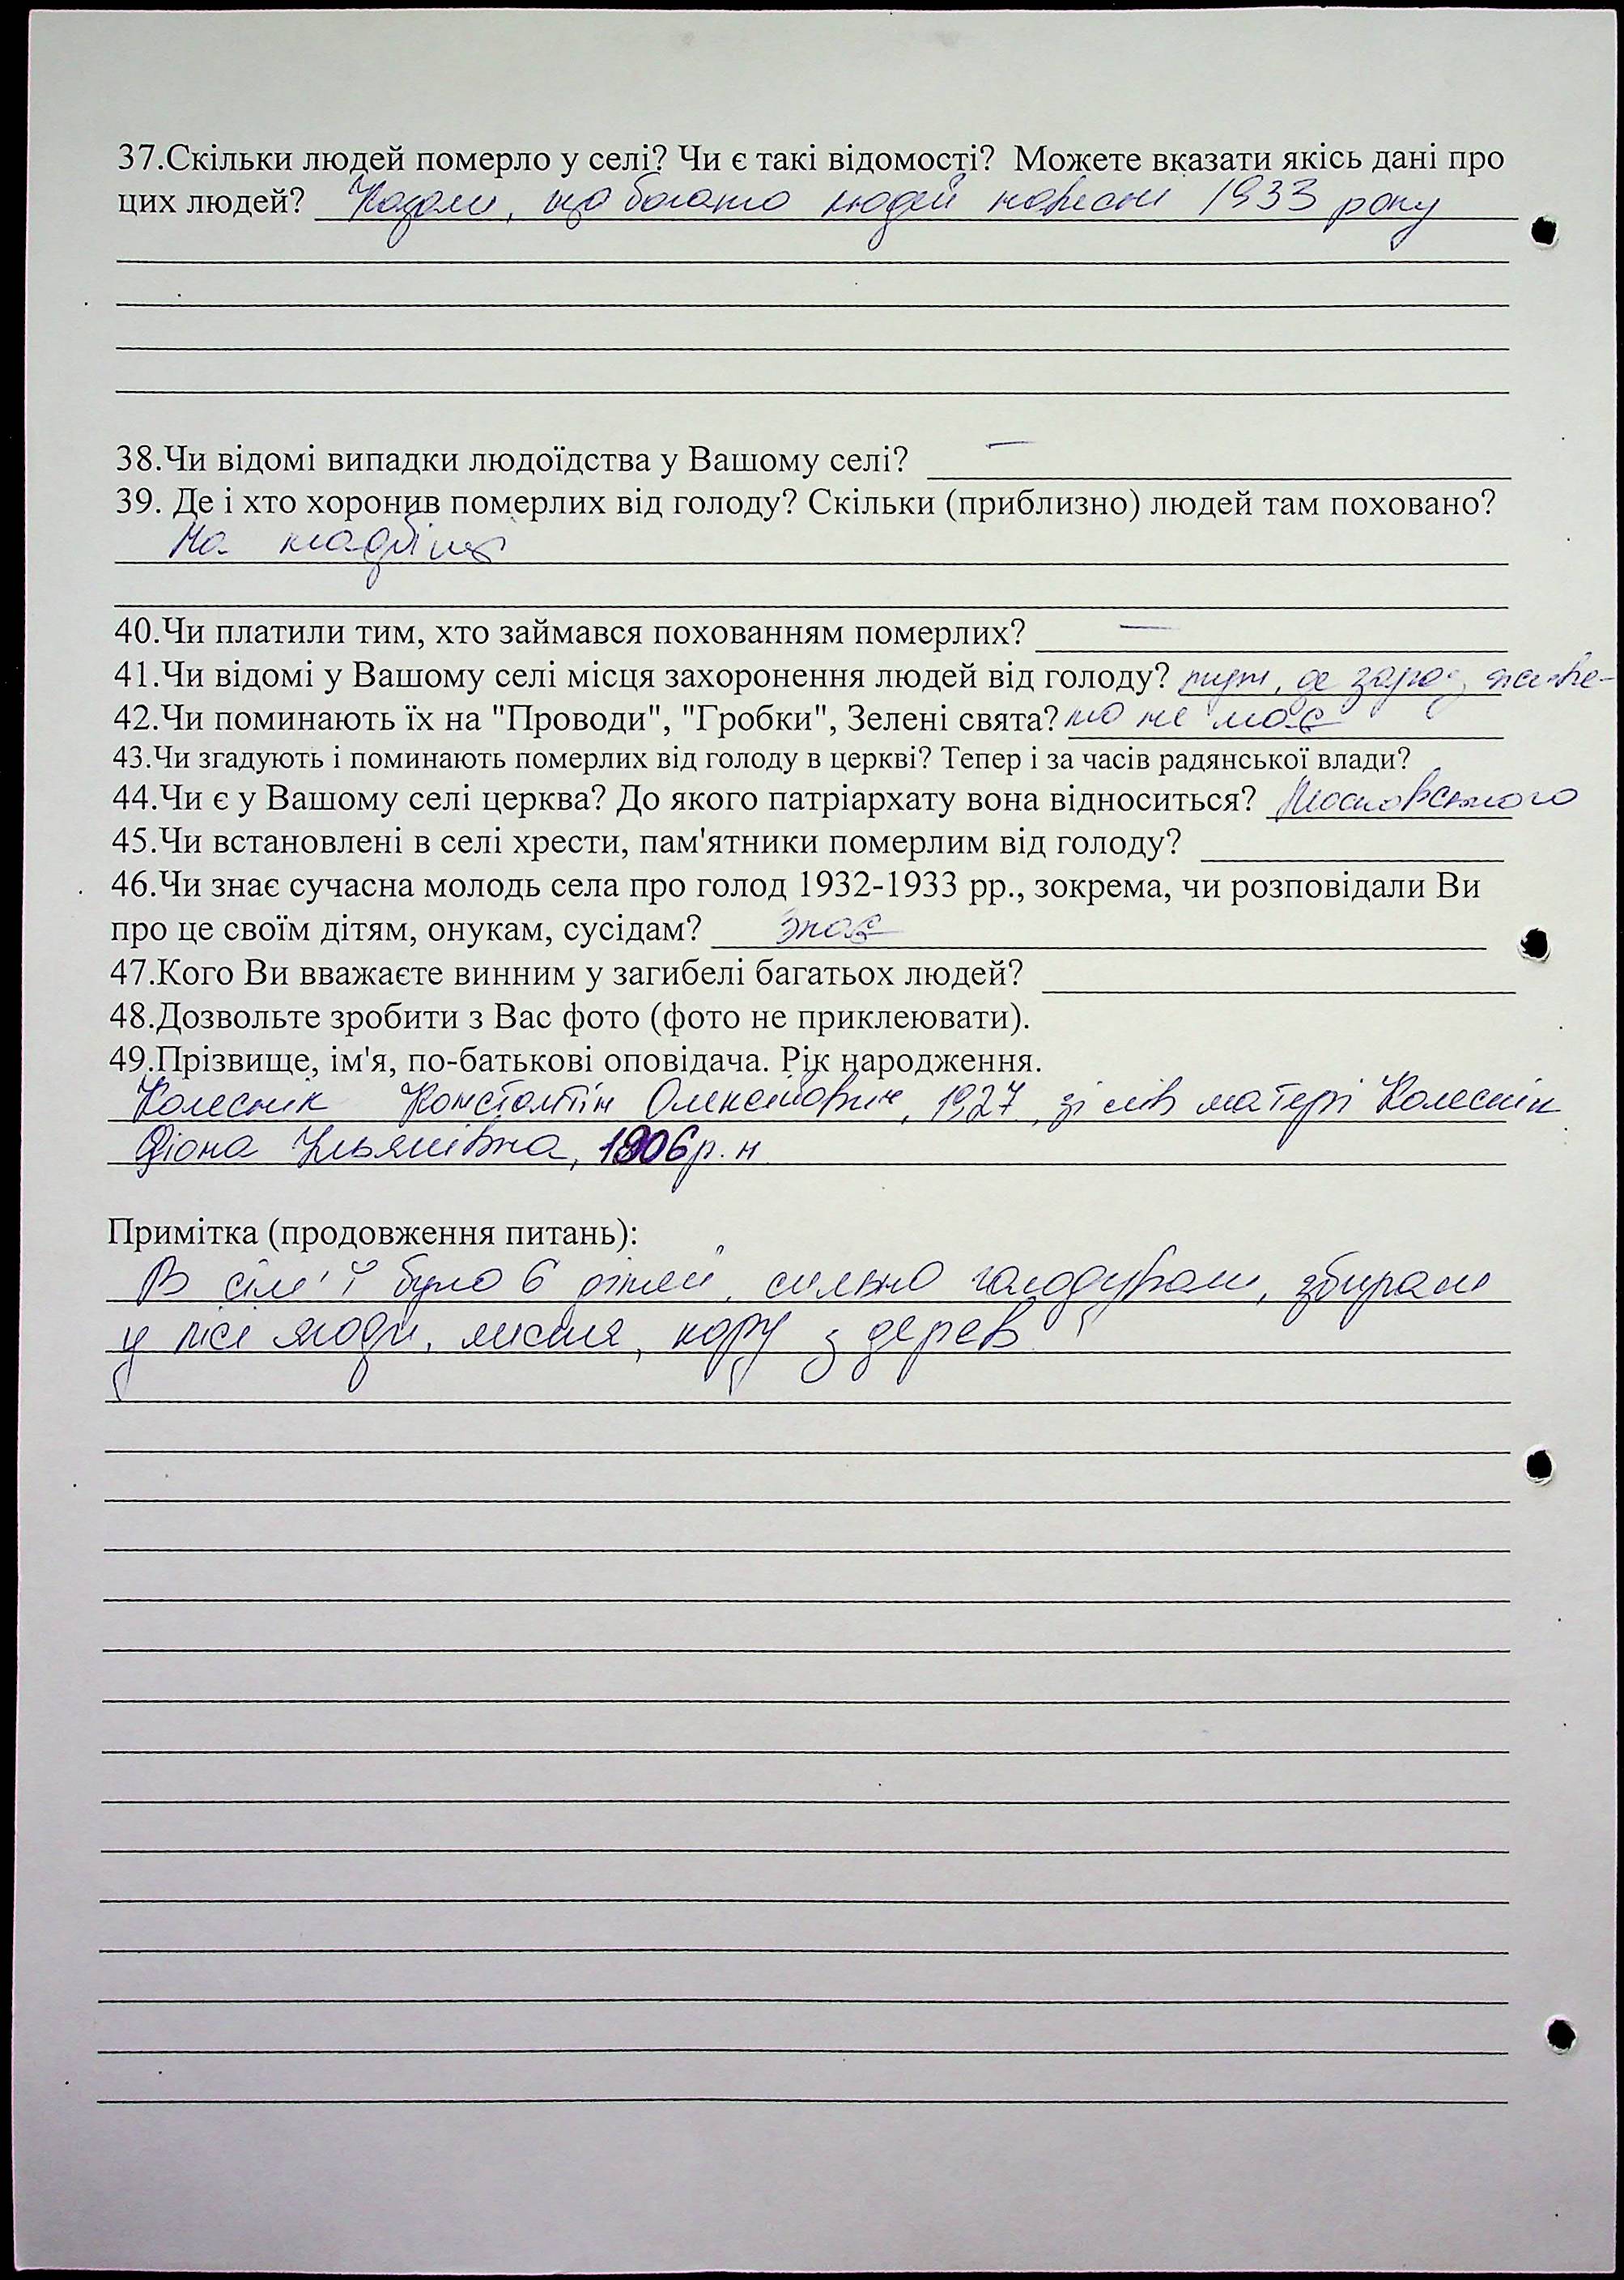 37.Скільки людей померло у селі? Чи є такі відомості? Можете вказати якісь дані про
цих людей? Казали, що багато людей навесні 1933 року
38.Чи відомі випадки людоїдства у Вашому селі? —
39. Де і хто хоронив померлих від голоду? Скільки (приблизно) людей там поховано?
На кладбіщі
40.Чи платили тим, хто займався похованням померлих? —
41.Чи відомі у Вашому селі місця захоронення людей від голоду? тут, де зараз
42.Чи поминають їх на "Проводи", "Гробки", Зелені свята? не має
43.Чи згадують і поминають померлих від голоду в церкві? Тепер і за часів радянської влади?
44.Чи є у Вашому селі церква? До якого патріархату вона відноситься? Московського
45.Чи встановлені в селі хрести, пам'ятники померлим від голоду?
46.Чи знає сучасна молодь села про голод 1932-1933 рр., зокрема, чи розповідали Ви
про це своїм дітям, онукам, сусідам? знає
47.Кого Ви вважаєте винним у загибелі багатьох людей?
48.Дозвольте зробити з Вас фото (фото не приклеювати).
49.Прізвище, ім'я, по-батькові оповідача. Рік народження.
Колеснік Константін Олексійович, 1927, зі слів матері Колеснік
Ульянівна, 1906р.н
Примітка (продовження питань):
В сім'ї було 6 дітей, сильно голодували, збирали
у лісі ягоди, листя, кору з дерев